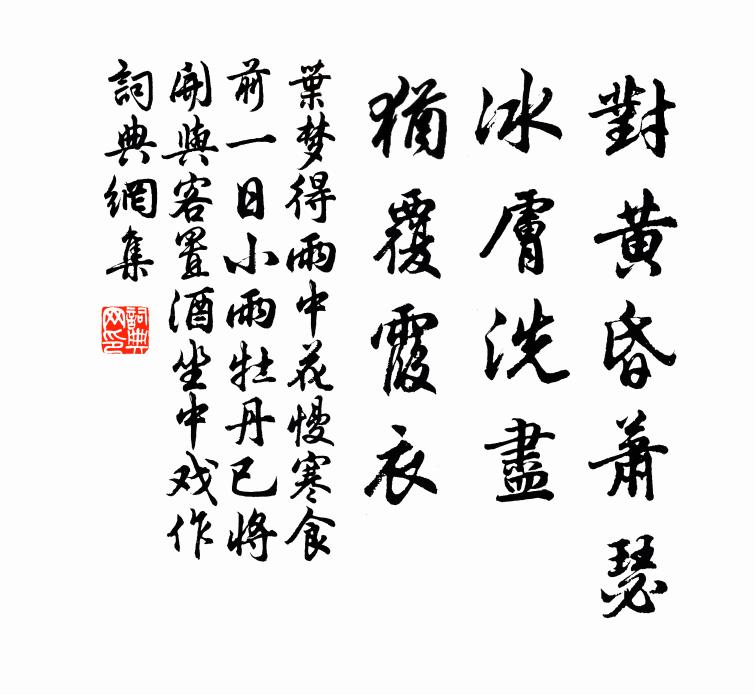 對黃昏蕭瑟
冰膚洗盡
猶覆霞衣
葉梦得雨中花慢寒食
前一日小雨牡丹已將
開與客置酒坐中戏作
詞典網集
詞典
网印